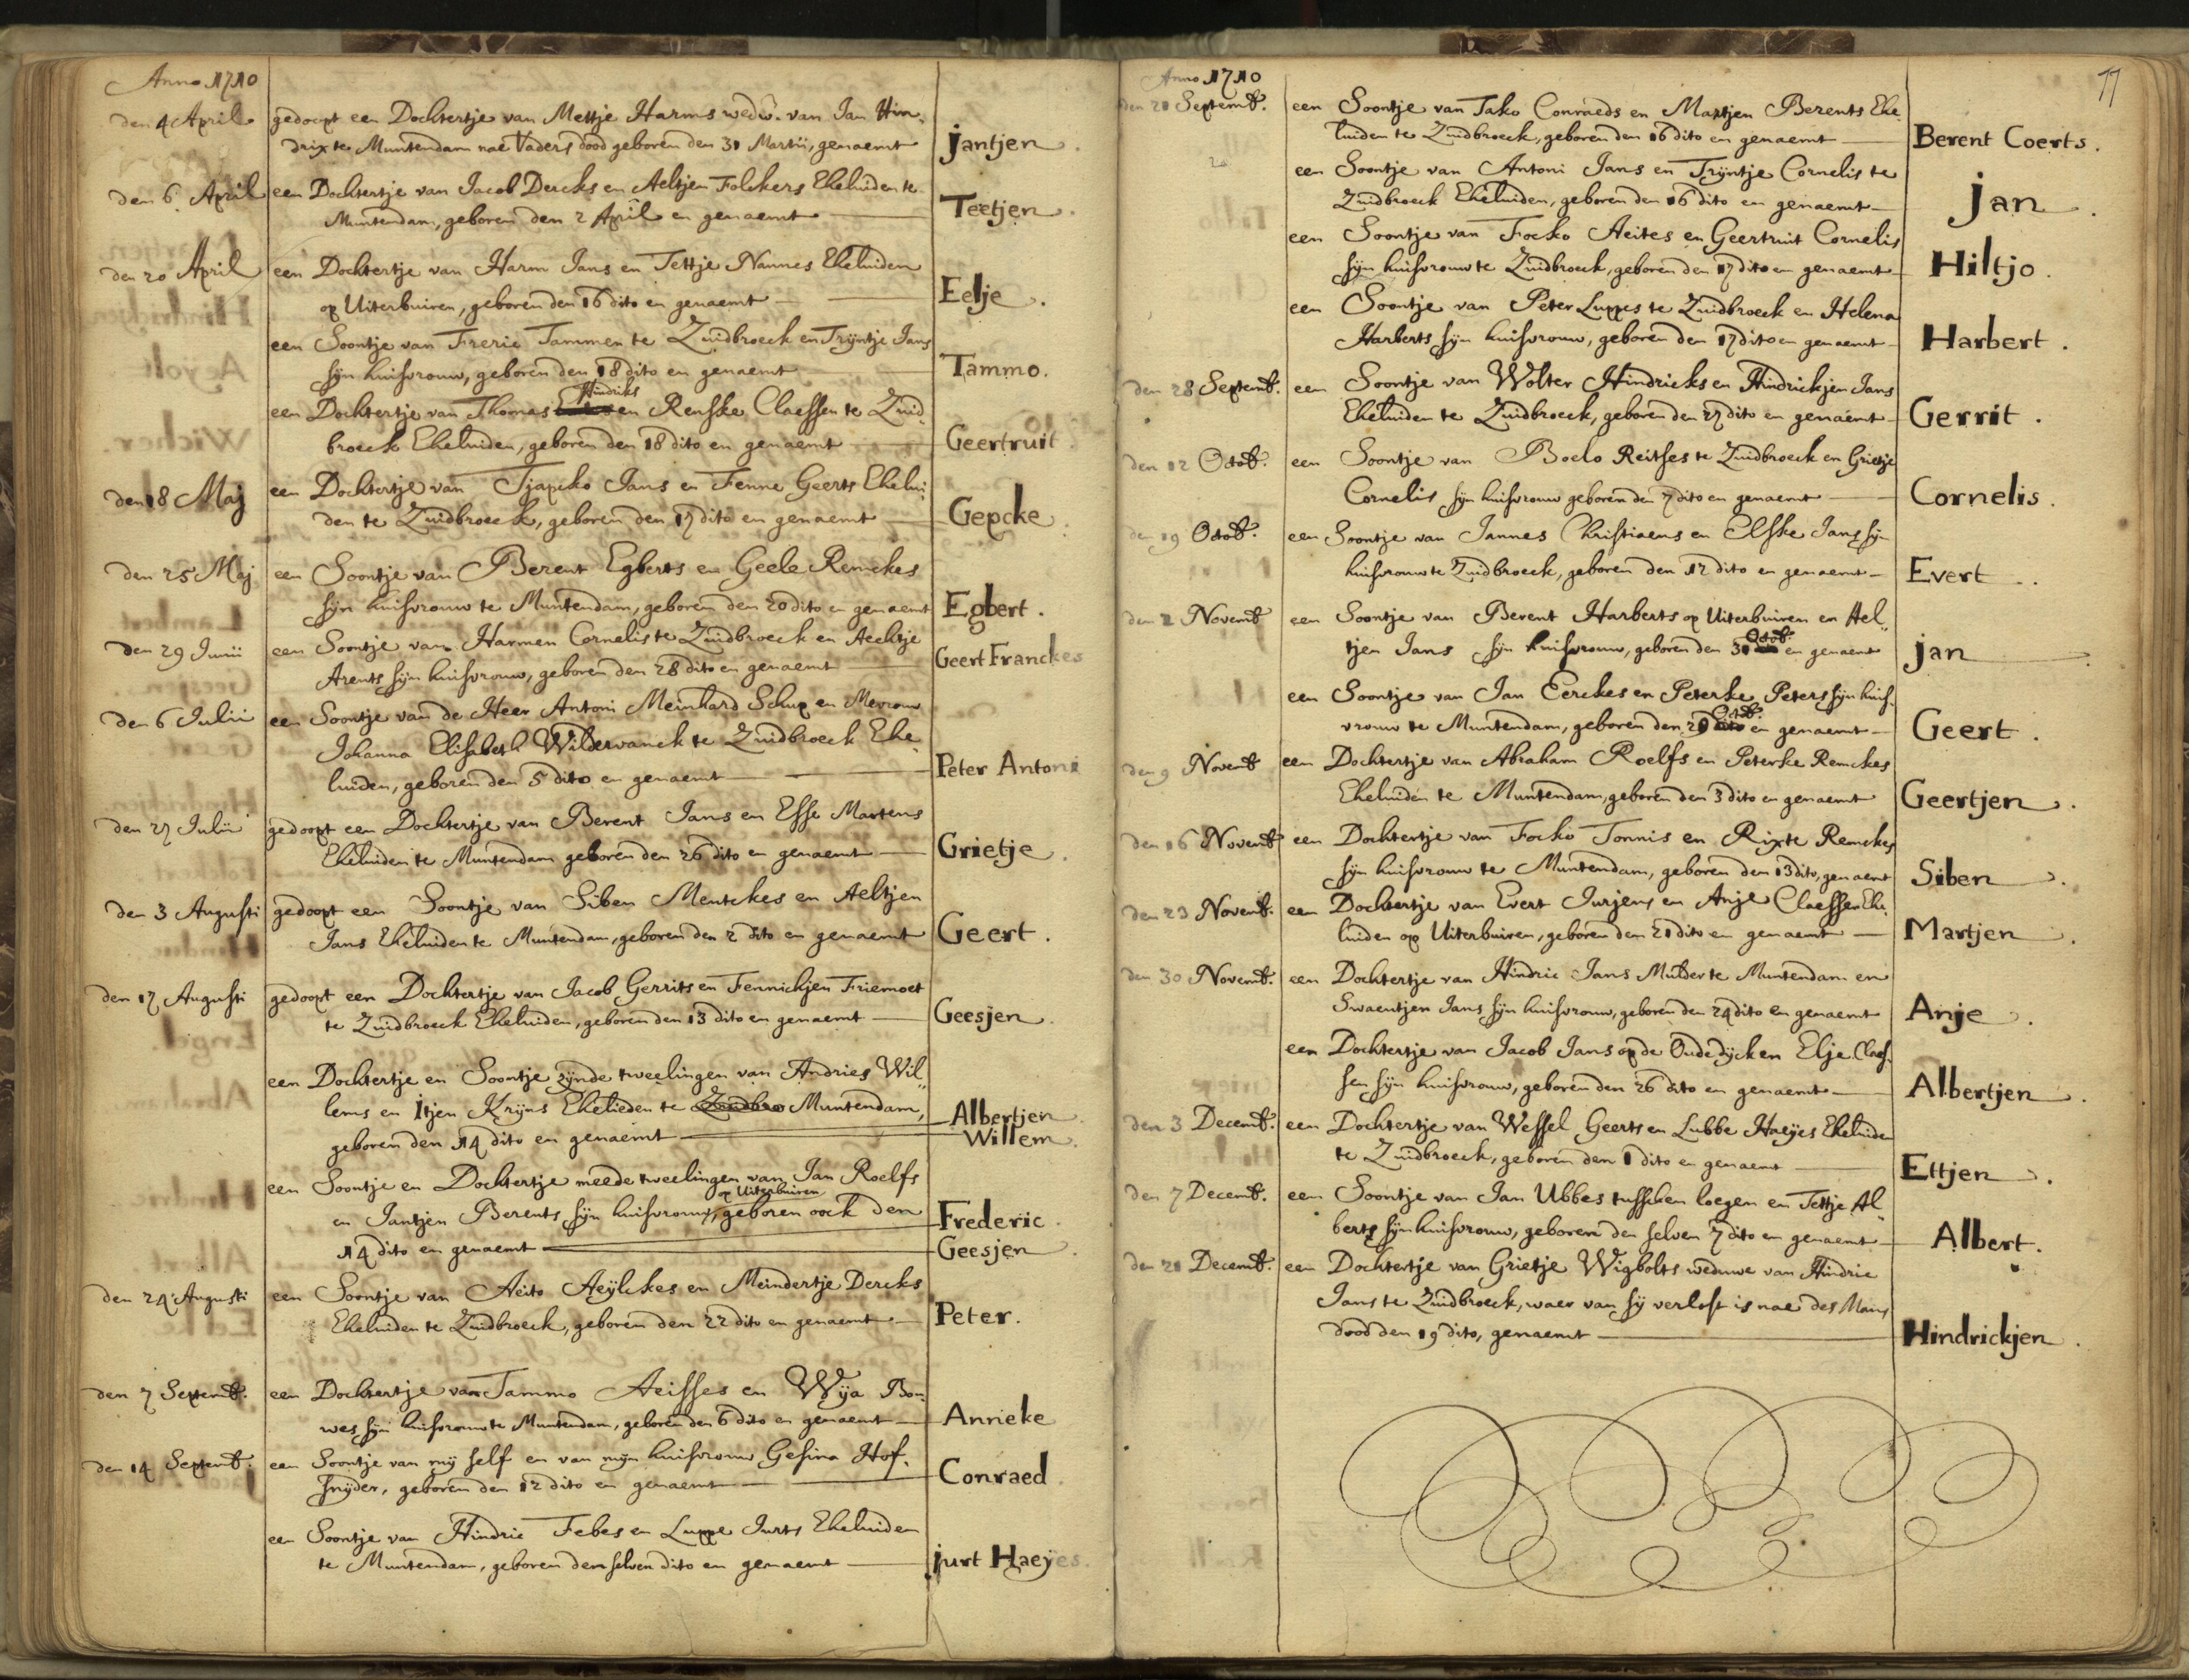 Anno 1710
den 4 April gedoopt een Dochtertje van Mettje Harms wedw. van Jan Hin-
drix te Muntendam nae Vaders dood geboren den 31 Martii, genaemt Jantjen.
den 6 April een Dochtertje van Jacob Dercks en Aeltjen Folckers Eheluiden te
Muntendam, geboren den 2 April en genaemt Teetjen.
den 20 April een Dochtertje van Harm Jans en Tettje Nannes Eheluiden
op Uiterbuiren, geboren den 16 dito en genaemt Eelje.
een Soontje van Freric Tammen te Zuidbroeck en Trijntje Jans
sijn huisvrouw, geboren den 18 dito en genaemt Tammo.
Hindriks
een Dochtertje van Thomas en Renske Claessen te Zuid
broeck Eheluiden, geboren den 18 dito en genaemt Geertruit.
den 18 Maj een Dochtertje van Tjapcko Jans en Fenne Geerts Ehelui
den te Zuidbroeck, geboren den 17 dito en genaemt Gepcke.
den 25 Maj een Soontje van Berent Egberts en Geele Remckes
sijn huisvrouw te Muntendam, geboren den 20 dito en genaemt Egbert.
den 29 Junii een Soontje van Harmen Cornelis te Zuidbroeck en Aechtje
Arents sijn huisvrouw, geboren den 28 dito en genaemt Geert Franckes
den 6 Julii een Soontje van de Heer Antoni Meinhard Schup en Mevrouw
Johanna Elisabeth Wildervanck te Zuidbroeck Ehe
luiden, geboren den 5 dito en genaemt Peter Antoni
den 27 Julii gedoopt een Dochtertje van Berent Jans en Esse Martens
Eheluiden te Muntendam geboren den 26 dito en genaemt Grietje.
den 3 Augusti gedoopt een Soontje van Siben Mentckes en Aeltjen
Jans Eheluiden te Muntendam, geboren den 2 dito en genaemt Geert.
den 17 Augusti gedoopt een Dochtertje van Jacob Gerrits en Fennichjen Friemoet
te Zuidbroeck Eheluiden, geboren den 13 dito en genaemt Geesjen
een Dochtertje en Soontje zijnde tweelingen van Andries Wil„
lems en Itjen Krijns Ehelieden te Muntendam, Albertjen
geboren den 14 dito en genaemt Willem.
een Soontje en Dochtertje meede tweelingen van Jan Roelfs
op Uiterbuiren
en Jantjen Berents sijn huisvrouw, geboren oock den Frederic.
14 dito en genaemt Geesjen.
den 24 Augusti een Soontje van Aeito Aeijlckes en Meindertje Dercks
Eheluiden te Zuidbroeck, geboren den 22 dito en genaemt Peter.
den 7 Septemb. een Dochtertje van Tammo Aeisses en Wija Bou-
wes sijn huisvrouw te Muntendam, geboren den 6 dito en genaemt Anneke
den 14 Septemb. een Soontje van mij self en van mijn huisvrouw Gesina Hof-
snijder, geboren den 12 dito en genaemt Conraed
een Soontje van Hindric Febes en Luppe Jurts Eheluiden
te Muntendam, geboren den selven dito en genaemt Jurt Haeijes.
77
Anno 1710
den 21 Septemb. een Soontje van Tako Conraeds en Martjen Berents Ehe
luiden te Zuidbroeck, geboren den 16 dito en genaemt Berent Coerts.
een Soontje van Antoni Jans en Trijntje Cornelis te
Zuidbroeck Eheluiden, geboren den 16 dito en genaemt Jan.
een Soontje van Focko Aeites en Geertruit Cornelis
sijn huisvrouw te Zuidbroeck, geboren den 17 dito en genaemt Hiltjo.
een Soontje van Peter Luppes te Zuidbroeck en Helena
Harberts sijn huisvrouw, geboren den 17 dito en genaemt Harbert.
den 28 Septemb. een Soontje van Wolter Hindricks en Hindrickjen Jans
Eheluiden te Zuidbroeck, geboren den 27 dito en genaemt Gerrit.
den 12 Octob. een Soontje van Boelo Reitses te Zuidbroeck en Grietje
Cornelis sijn huisvrouw geboren den 7 dito en genaemt Cornelis.
den 19 Octob. een Soontje van Jannes Christiaens en Elske Jans sijn
huisvrouw te Zuidbroeck, geboren den 12 dito en genaemt Evert.
den 2 Novemb een Soontje van Berent Harberts op Uiterbuiren en Ael„
Octob.
tjen Jans sijn huisvrouw, geboren den 31 en genaemt Jan
een Soontje van Jan Eerckes en Peterke Peters sijn huis-
Octob.
vrouw te Muntendam, geboren den 29 en genaemt Geert.
den 9 Novemb een Dochtertje van Abraham Roelfs en Peterke Remckes
Eheluiden te Muntendam, geboren den 3 dito en genaemt Geertjen.
den 16 Novemb een Dochtertje van Focko Tonnis en Rixte Remckes
sijn huisvrouw te Muntendam, geboren den 13 dito, genaemt Siben.
den 23 Novemb. een Dochtertje van Evert Jurjens en Anje Claessen Ehe
luiden op Uiterbuiren, geboren den 21 dito en genaemt Martjen.
den 30 Novemb. een Dochtertje van Hindric Jans Mulder te Muntendam en
Swaentjen Jans sijn huisvrouw, geboren den 24 dito en genaemt Anje.
een Dochtertje van Jacob Jans op de Oude dijck en Elje Claes-
sen sijn huisvrouw, geboren den 26 dito en genaemt Albertjen.
den 3 Decemb. een Dochtertje van Wessel Geerts en Lubbe Haeijes Eheluiden
te Zuidbroeck, geboren den 1 dito en genaemt Ettjen.
den 7 Decemb. een Soontje van Jan Ubbes tusschen loegen en Tettje Al„
berts sijn huisvrouw, geboren den selven 7 dito en genaemt Albert.
den 21 Decemb. een Dochtertje van Grietje Wigbolts weduwe van Hindric
Jans te Zuidbroeck, waer van sij verlost is nae des Mans
dood den 19 dito, genaemt Hindrickjen.